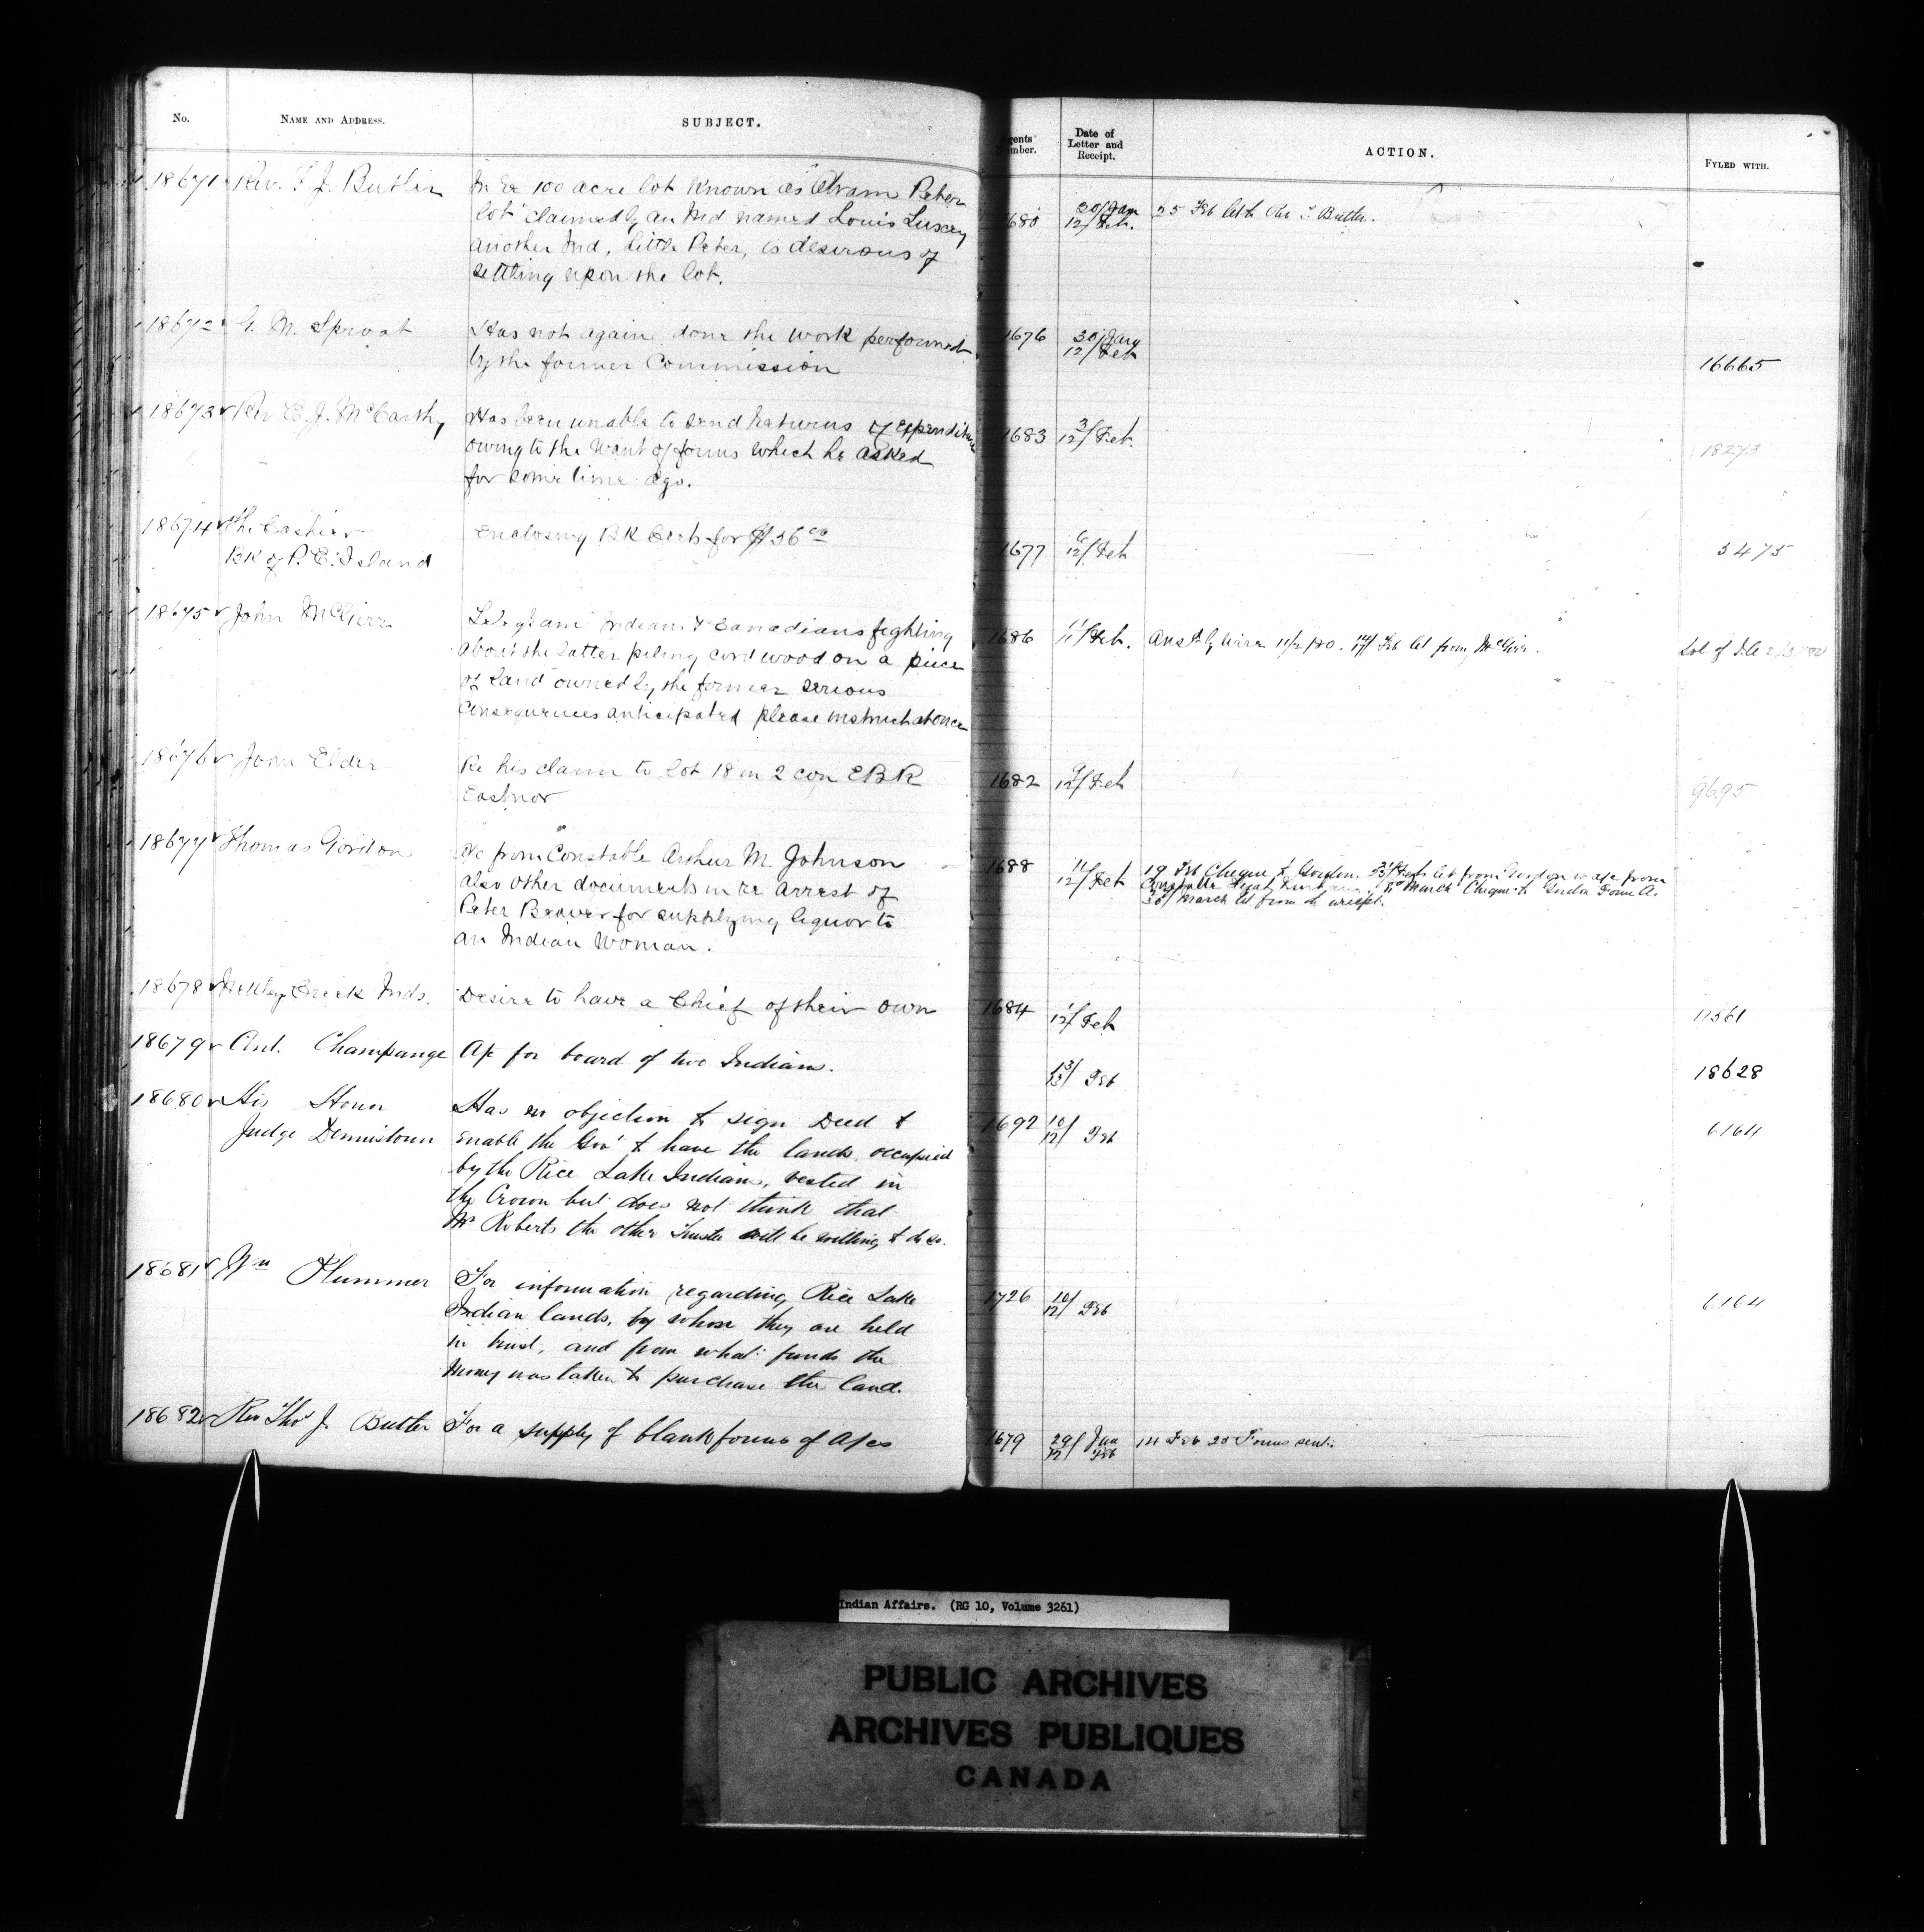 No.
NAME AND ADDRESS.
SUBJECT.
Agents' Number.
Date of Letter and Receipt.
ACTION.
FYLED WITH.
18671 Rev. T J. Butler
In re 100 acre lot known as "Abram Peter
lot" claimed by an Ind named Louis Luxcey
another Ind, Little Peter, is desirous of
settling upon the lot.
1680
30/Jan
12/Feb.
25 Feb let to Rev T. Butler.
18672 G. M. Sproat
Has not again done the work performed
by the former Commission
1676
30/Jany
12/Feb
16665
18673 Rev E. J. McCarthy
Has been unable to send Returns of expenditure
owing to the want of forms which he asked
for some time ago.
1683
3/
12/Feb.
18273
18674 The Cashier
BK of P. E. Island
Enclosing BK Certs for $36
1677
6/
12/Feb
3475
18675 John McGirr
Telegram "Indians & Canadians fighting
about the latter piling cord wood on a piece
of land owned by the former serious
consequences anticipated please instruct at once
1686
11/
11/Feb.
Ansd by wire 11/2/80. 14/ Feb let from McGirr.
18676 John Elder
Re his claim to lot 18 in 2 con EBR
Eastnor
1682
9/
12/Feb
9695
18677 Thomas Gordon
A/c from Constable Arthur M. Johnson
also other documents in re arrest of
Peter Beaver for supplying liquor to
an Indian Woman.
1688
11/
12/Feb
19 Feb Cheque to Gordon. let from Gordon w a/c from
Constable March Cheque to Gordon Form A.
30/ March let from do w receipt.
18678 Netley Creek Inds.
Desire to have a Chief of their own
1684
1/
12/Feb
11561
18679 Ant. Champange
A/c for board of two Indians.
13/
13/ Feb
18628
18680 His Honor
Judge Dennistoun
Has no objection to sign Deed to
enable the Govt to have the lands occupied
by the Rice Lake Indians, vested in
the Crown but does not think that
Mr Roberts the other Trustee will be willing to do so.
1692
10/
12/ Feb
6164
18681 Wm Plummer
For information regarding Rice Lake
Indian lands, by whom they are held
in trust, and from what funds the
money was taken to purchase the land.
1726
10/
12/ Feb
6164
18682 Rev Thos J. Butler
For a supply of blank forms of A/cs
1679
29/ Jan
12/ Feb
14 Feb 25 Forms sent.
Indian Affairs. (RG 10, Volume 3261)
PUBLIC ARCHIVES
ARCHIVES PUBLIQUES
CANADA